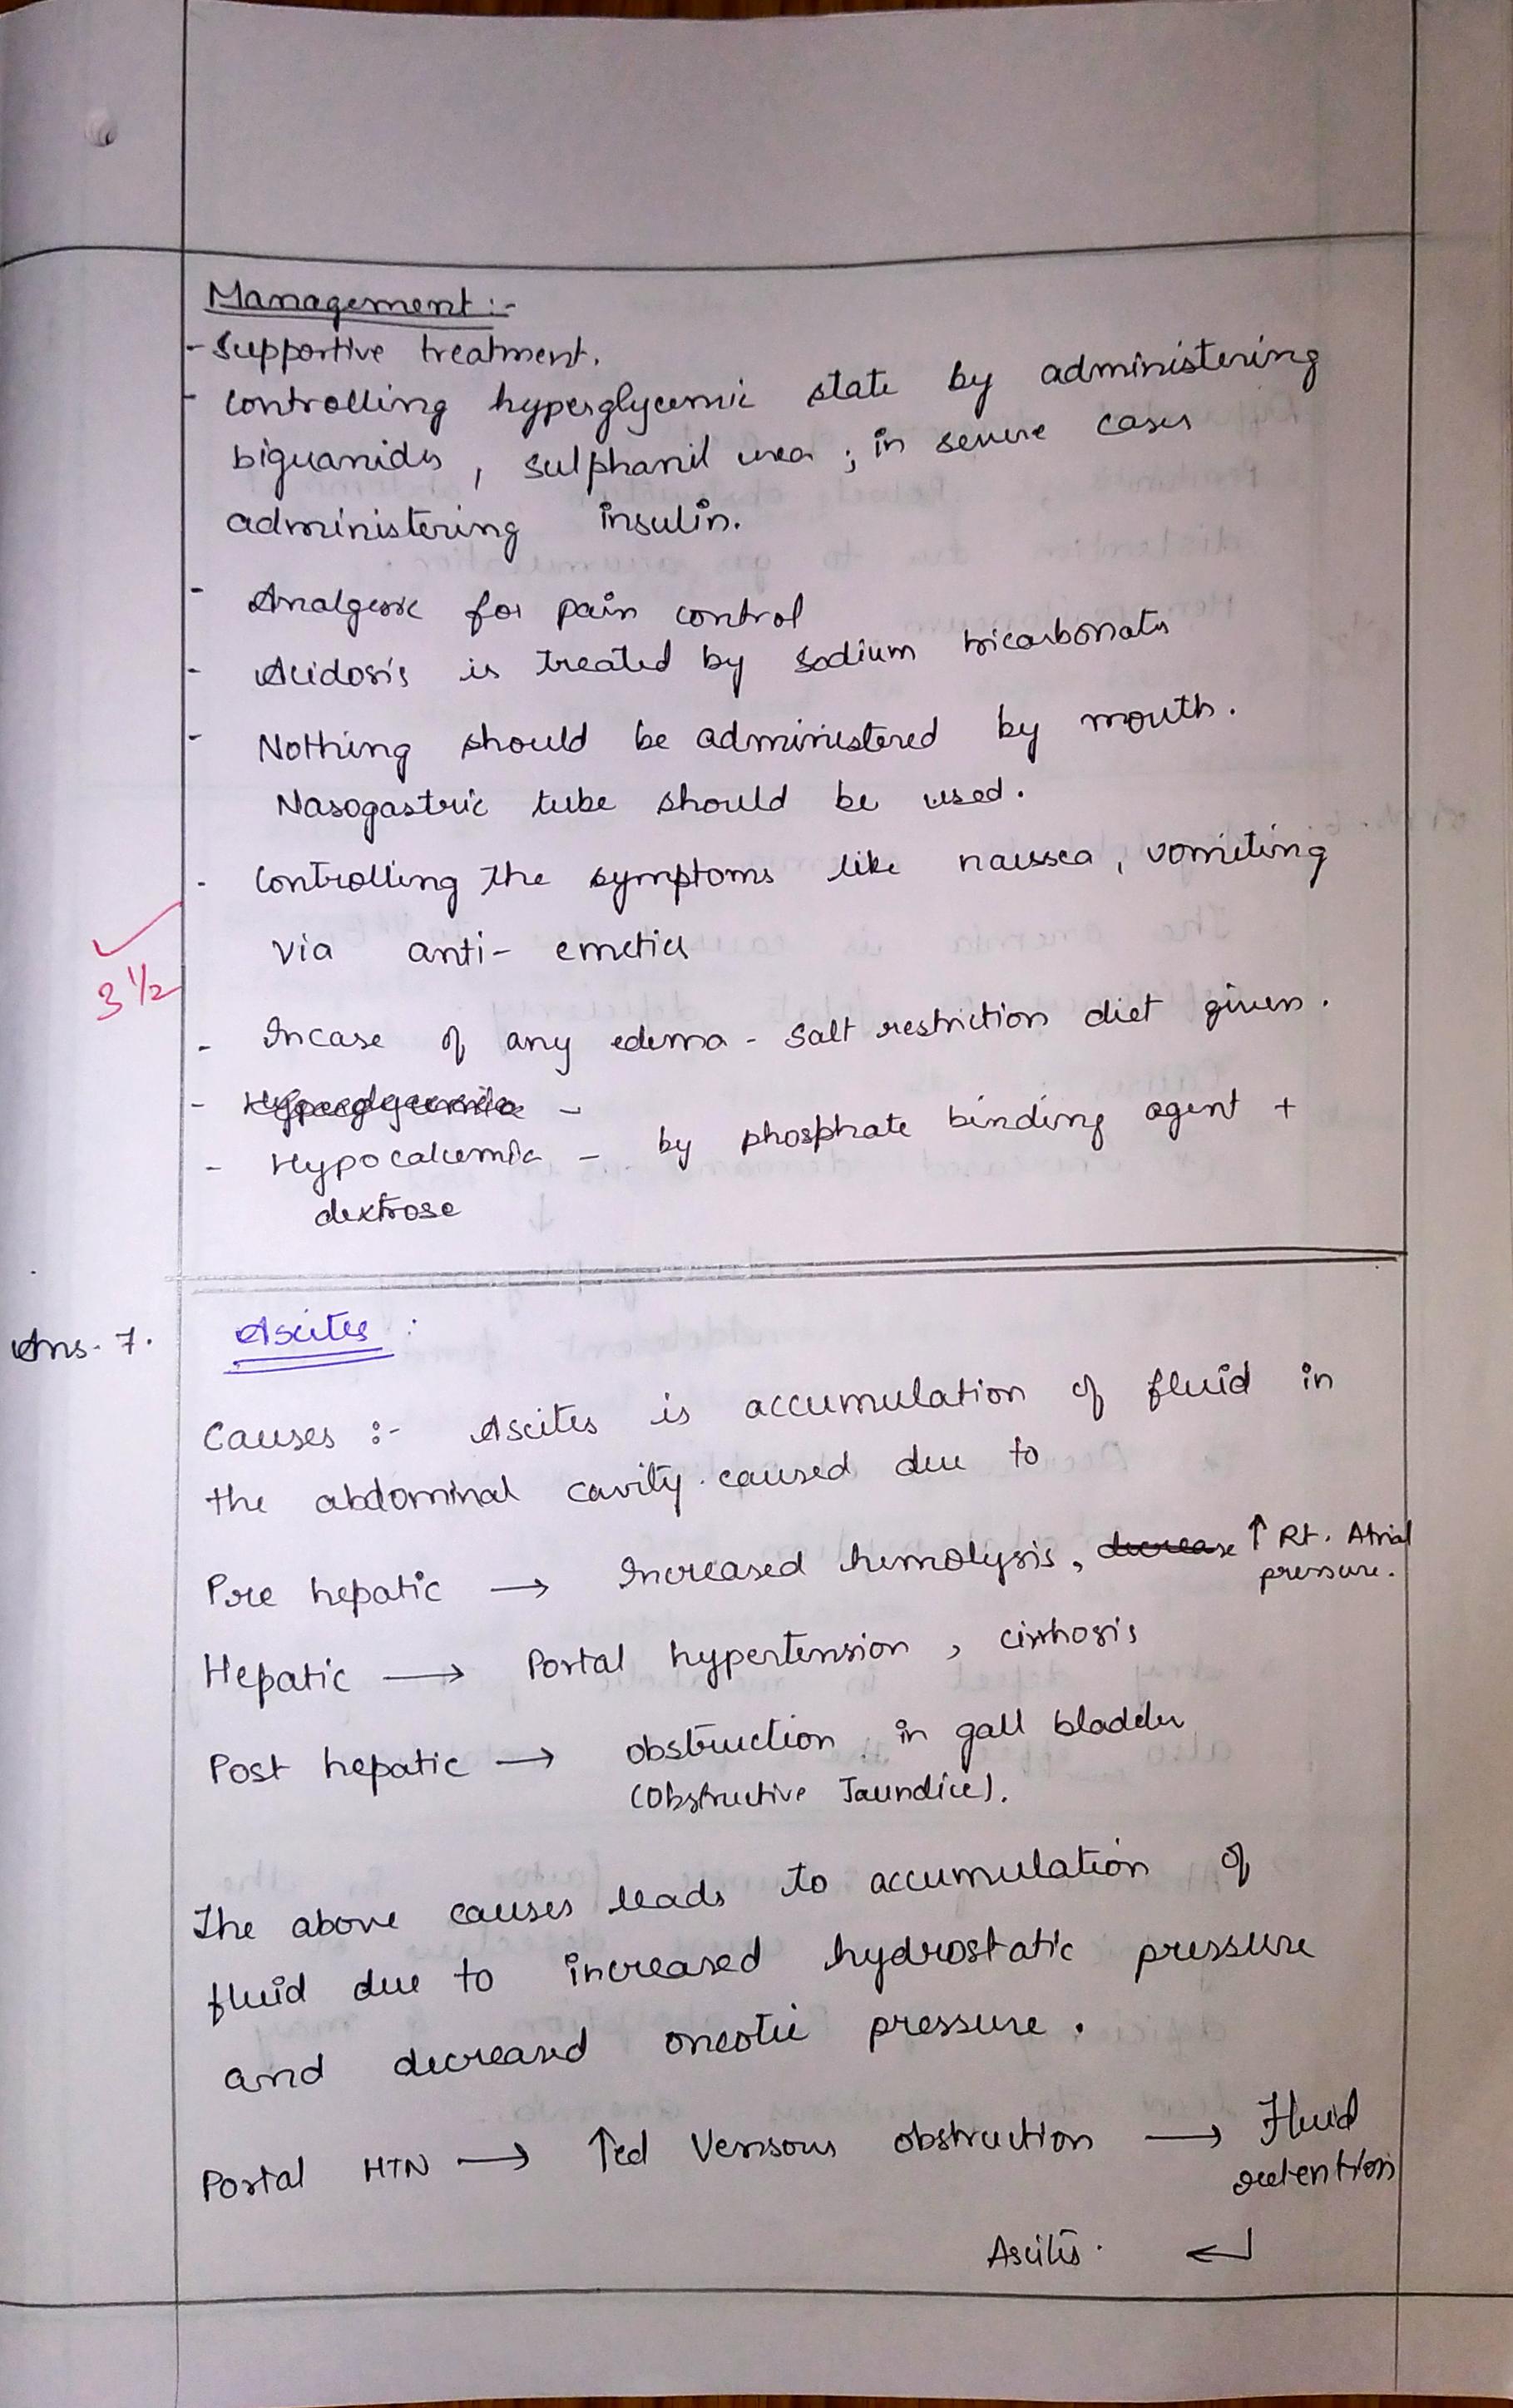 Management :-
- Supportive treatment.
- Controlling hyperglycemic state by administering
biguanides, sulphanil urea ; in severe cases
administering insulin.
- Analgesic for pain control
- Acidosis is treated by sodium bicarbonates
- Nothing should be administered by mouth.
Nasogastric tube should be used.
- Controlling the symptoms like naussea, vomiting
via anti- emetics
3 1/2
- Incase of any edema - Salt restriction diet given.
- Hyperglycemia -
- Hypocalcemia - by phosphate binding agent +
dextrose
Ans. 7. Ascites :
Causes :- Ascites is accumulation of fluid in
the abdominal cavity. caused due to
Pre hepatic → Increased hemolysis, decrease ↑ Rt. Atrial
pressure.
Hepatic → Portal hypertension, cirrhosis
Post hepatic → obstruction in gall bladder
(Obstructive Jaundice).
The above causes leads to accumulation of
fluid due to increased hydrostatic pressure
and decreased oncotic pressure.
Portal HTN → ↑ed Vensous obstruction → Fluid
retention
Ascitis. ↵